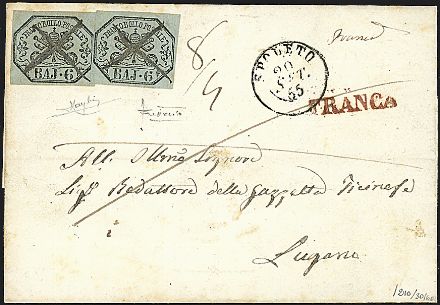 FRANCO BOLLO POSTALE
BAJ·6
FRANCO BOLLO POSTALE
BAJ·6
8/4
Franca
SPOLETO
20
SET.
55
FRANCA
All. Illmo Signore
Redattore della Gazzetta Ticinese
Lugano